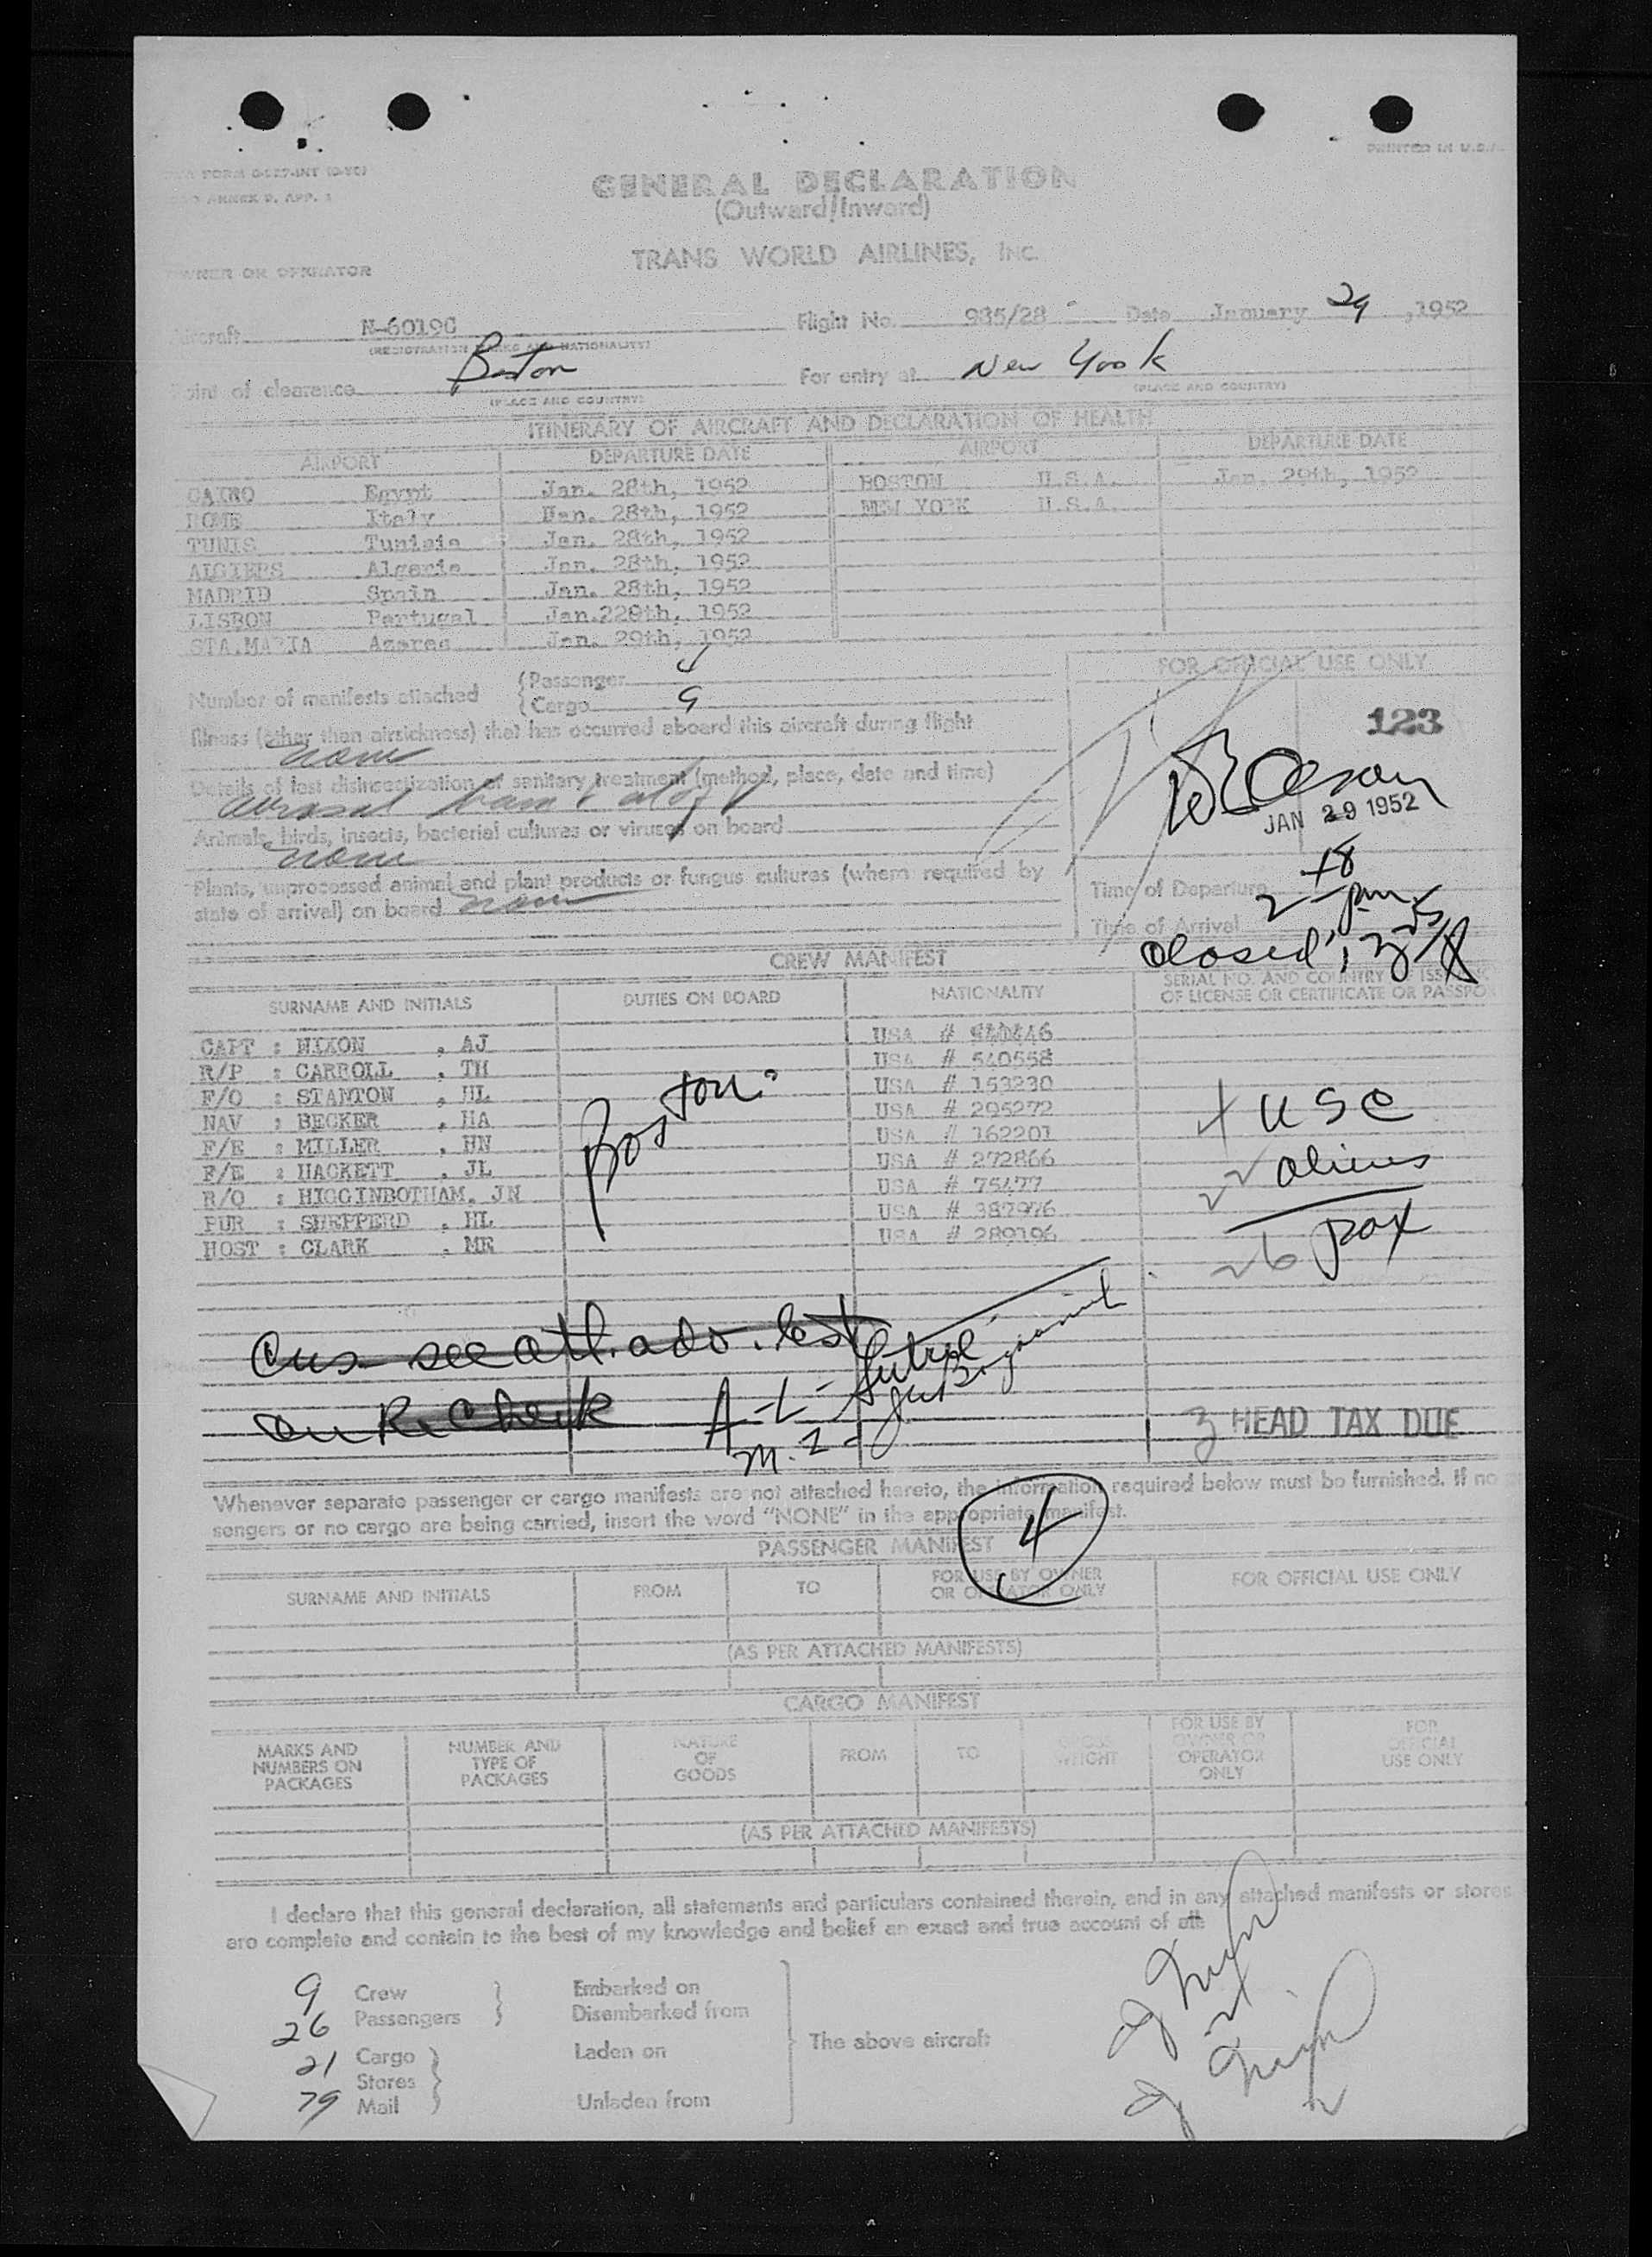 PRINTED IN U.S.A.
FORM
ANNEX 9, APP. 1
GENERAL DECLARATION
(Outward/Inward)
TRANS WORLD AIRLINES, INC.
OWNER OR OPERATOR
Aircraft N-6019C Flight No. 985/28 Date January 29, 1952
(REGISTRATION MARKS AND NATIONALITY)
Point of clearance Boston For entry at New York
(PLACE AND COUNTRY) (PLACE AND COUNTRY)
ITINERARY OF AIRCRAFT AND DECLARATION OF HEALTH
AIRPORT DEPARTURE DATE AIRPORT DEPARTURE DATE
CAIRO Egypt Jan. 28th, 1952 BOSTON U.S.A. Jan. 29th, 1952
ROME Italy Han. 28th, 1952 NEW YORK U.S.A.
TUNIS Tunisia Jan. 28th, 1952
ALGIERS Algeria Jan. 28th, 1952
MADRID Spain Jan. 28th, 1952
LISBON Portugal Jan.228th, 1952
STA.MARIA Azores Jan. 29th, 1952
FOR OFFICIAL USE ONLY
Number of manifests attached
Passenger
Cargo 9
123
Illness (other than airsickness) that has occurred aboard this aircraft during flight
none
Details of last disinsectization of sanitary treatment (method, place, date and time)
aerosol bomb
JAN 29 1952
Animals, birds, insects, bacterial cultures or viruses on board
none
Plants, unprocessed animal and plant products or fungus cultures (when required by
state of arrival) on board none
Time of Departure
Time of Arrival 2 pm
closed
CREW MANIFEST
SURNAME AND INITIALS DUTIES ON BOARD NATIONALITY SERIAL NO. AND COUNTRY OF ISSUE
OF LICENSE OR CERTIFICATE OR PASSPO
CAPT : NIXON , AJ USA #
R/P : CARROLL , TH USA # 540558
F/O : STANTON , HL USA # 153230
NAV : BECKER , HA USA # 295272
F/E : MILLER , HN USA # 162201
F/E : HACKETT , JL USA # 272866
R/O : HIGGINBOTHAM, JN USA # 75477
PUR : SHEPPERD , HL USA # 382976
HOST : CLARK , MR USA # 289196
Boston
4 USC
22 aliens
26 pax
Cus see att. ado. list
on R. Check
A-L-
M. I -
3 HEAD TAX DUE
Whenever separate passenger or cargo manifests are not attached hereto, the information required below must be furnished. If no
sengers or no cargo are being carried, insert the word "NONE" in the appropriate manifest.
4
PASSENGER MANIFEST
SURNAME AND INITIALS FROM TO FOR USE BY OWNER
OR OPERATOR ONLY FOR OFFICIAL USE ONLY
(AS PER ATTACHED MANIFESTS)
CARGO MANIFEST
MARKS AND
NUMBERS ON
PACKAGES
NUMBER AND
TYPE OF
PACKAGES
NATURE
OF
GOODS
FROM
TO
GROSS
WEIGHT
FOR USE BY
OWNER OR
OPERATOR
ONLY
FOR
OFFICIAL
USE ONLY
(AS PER ATTACHED MANIFESTS)
I declare that this general declaration, all statements and particulars contained therein, and in any attached manifests or stores
are complete and contain to the best of my knowledge and belief an exact and true account of all:
9 Crew Embarked on
26 Passengers Disembarked from
The above aircraft
21 Cargo Laden on
Stores
79 Mail Unladen from